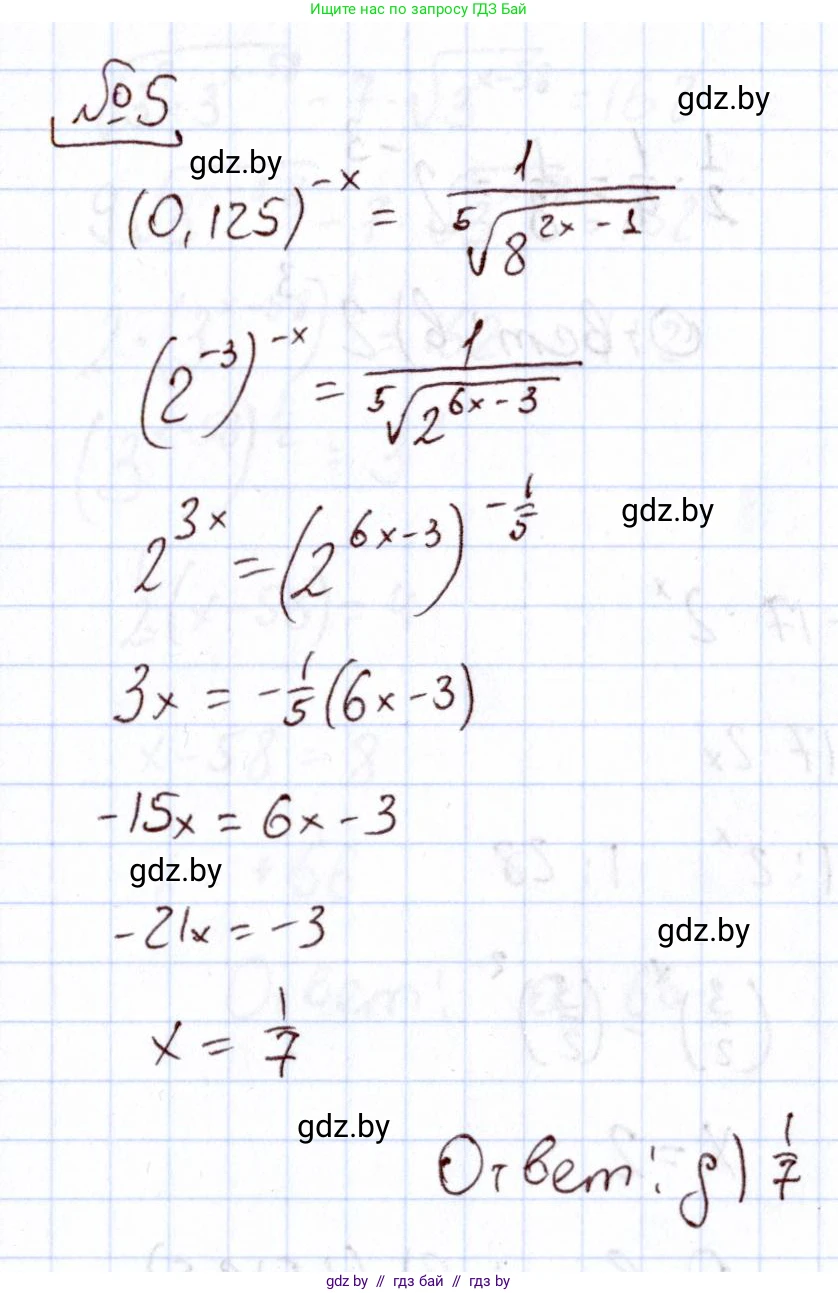 Ищите нас по запросу ГДЗ Бай
№5
gdz.by
gdz.by
(0,125)^{-x} = \frac{1}{\sqrt[5]{8^{2x-1}}}
(2^{-3})^{-x} = \frac{1}{\sqrt[5]{2^{6x-3}}}
2^{3x} = (2^{6x-3})^{-\frac{1}{5}}
gdz.by
3x = -\frac{1}{5}(6x-3)
-15x = 6x-3
gdz.by
-21x = -3
gdz.by
x = \frac{1}{7}
gdz.by
Ответ: д) \frac{1}{7}
gdz.by // гдз бай // гдз by